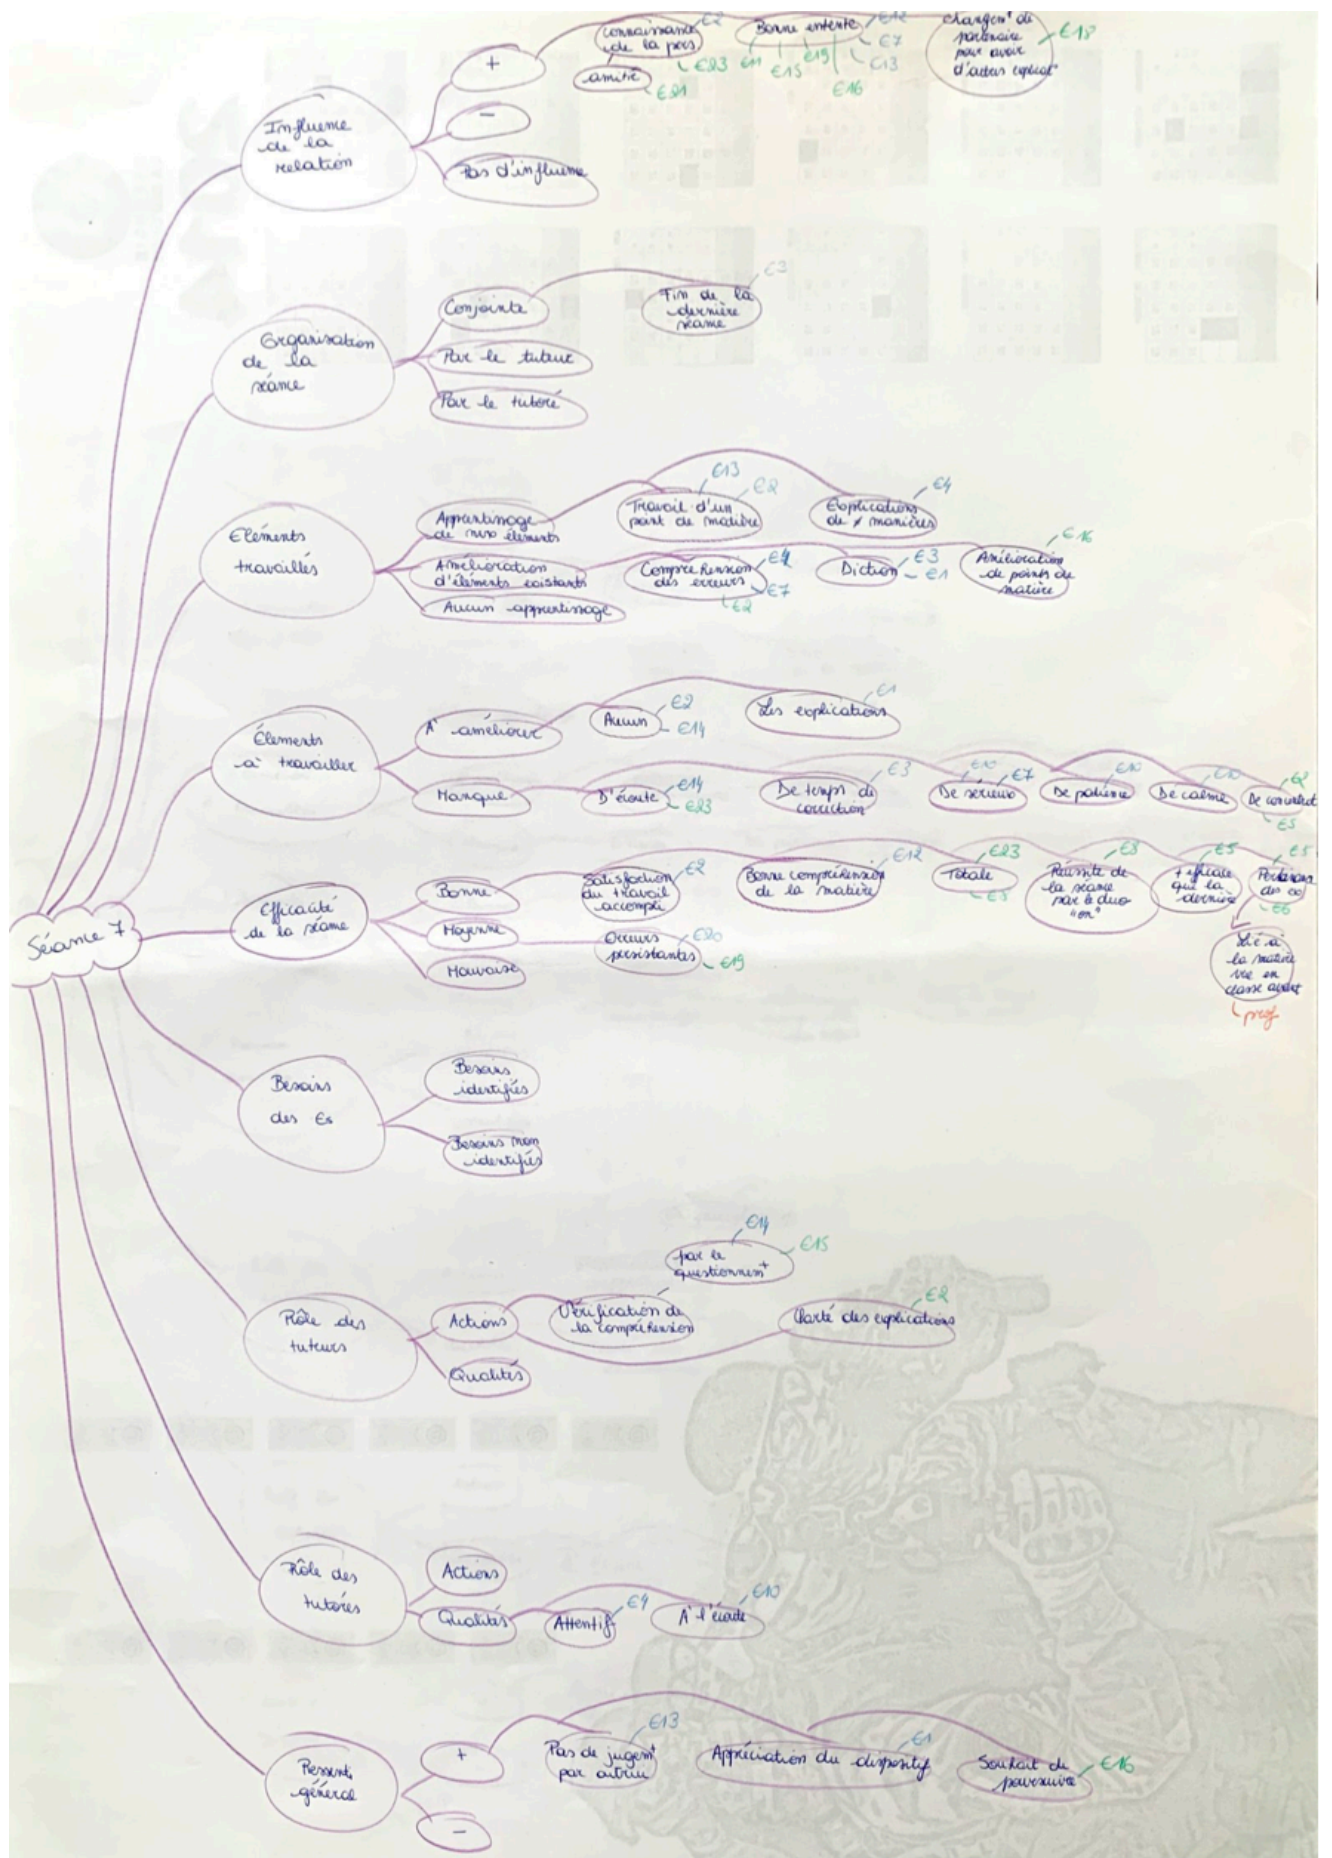 +
connaissance
de la pers
E2
E23
amitié
E21
Bonne entente
E12
E7
E13
E11
E15
E19
E16
Changemt de
partenaire
pour avoir
d'autres explicato
E18
Influence
de la
relation
-
Pas d'influence
Organisation
de la
séance
Conjointe
Fin de la
dernière
séance
E3
Par le tuteur
Par le tutoré
Eléments
travaillés
Apprentissage
de nvx éléments
Travail d'un
point de matière
E13
E2
Explications
de ≠ manières
E4
Amélioration
d'éléments existants
Compréhension
des erreurs
E4
E7
E2
Diction
E3
E1
Amélioration
de points de
matière
E16
Aucun apprentissage
Élements
à travailler
A améliorer
Aucun
E2
E14
Les explications
E1
Manque
D'écoute
E14
E23
De temps de
correction
E3
De sérieux
E10
E7
De patience
E10
De calme
E10
De concentrat
E2
E5
Séance 7
Efficacité
de la séance
Bonne
Satisfaction
du travail
accompli
E2
Bonne compréhension
de la matière
E12
Totale
E23
E5
Réussite de
la séance
par le duo
"on"
E8
+ efficace
que la
dernière
E5
des ex
E5
E6
Lié à
la matière
vue en
classe avant
prof
Moyenne
Erreurs
persistantes
E20
E19
Mauvaise
Besoins
des Es
Besoins
identifiés
Besoins non
identifiés
Rôle des
tuteurs
Actions
Vérification de
la compréhension
par le
questionnemt
E14
E15
Clarté des explications
E2
Qualités
Rôle des
tutorés
Actions
Qualités
Attentif
E4
A l'écoute
E10
Ressenti
général
+
Pas de jugemt
par autrui
E13
Appréciation du dispositif
E1
Souhait de
poursuivre
E16
-